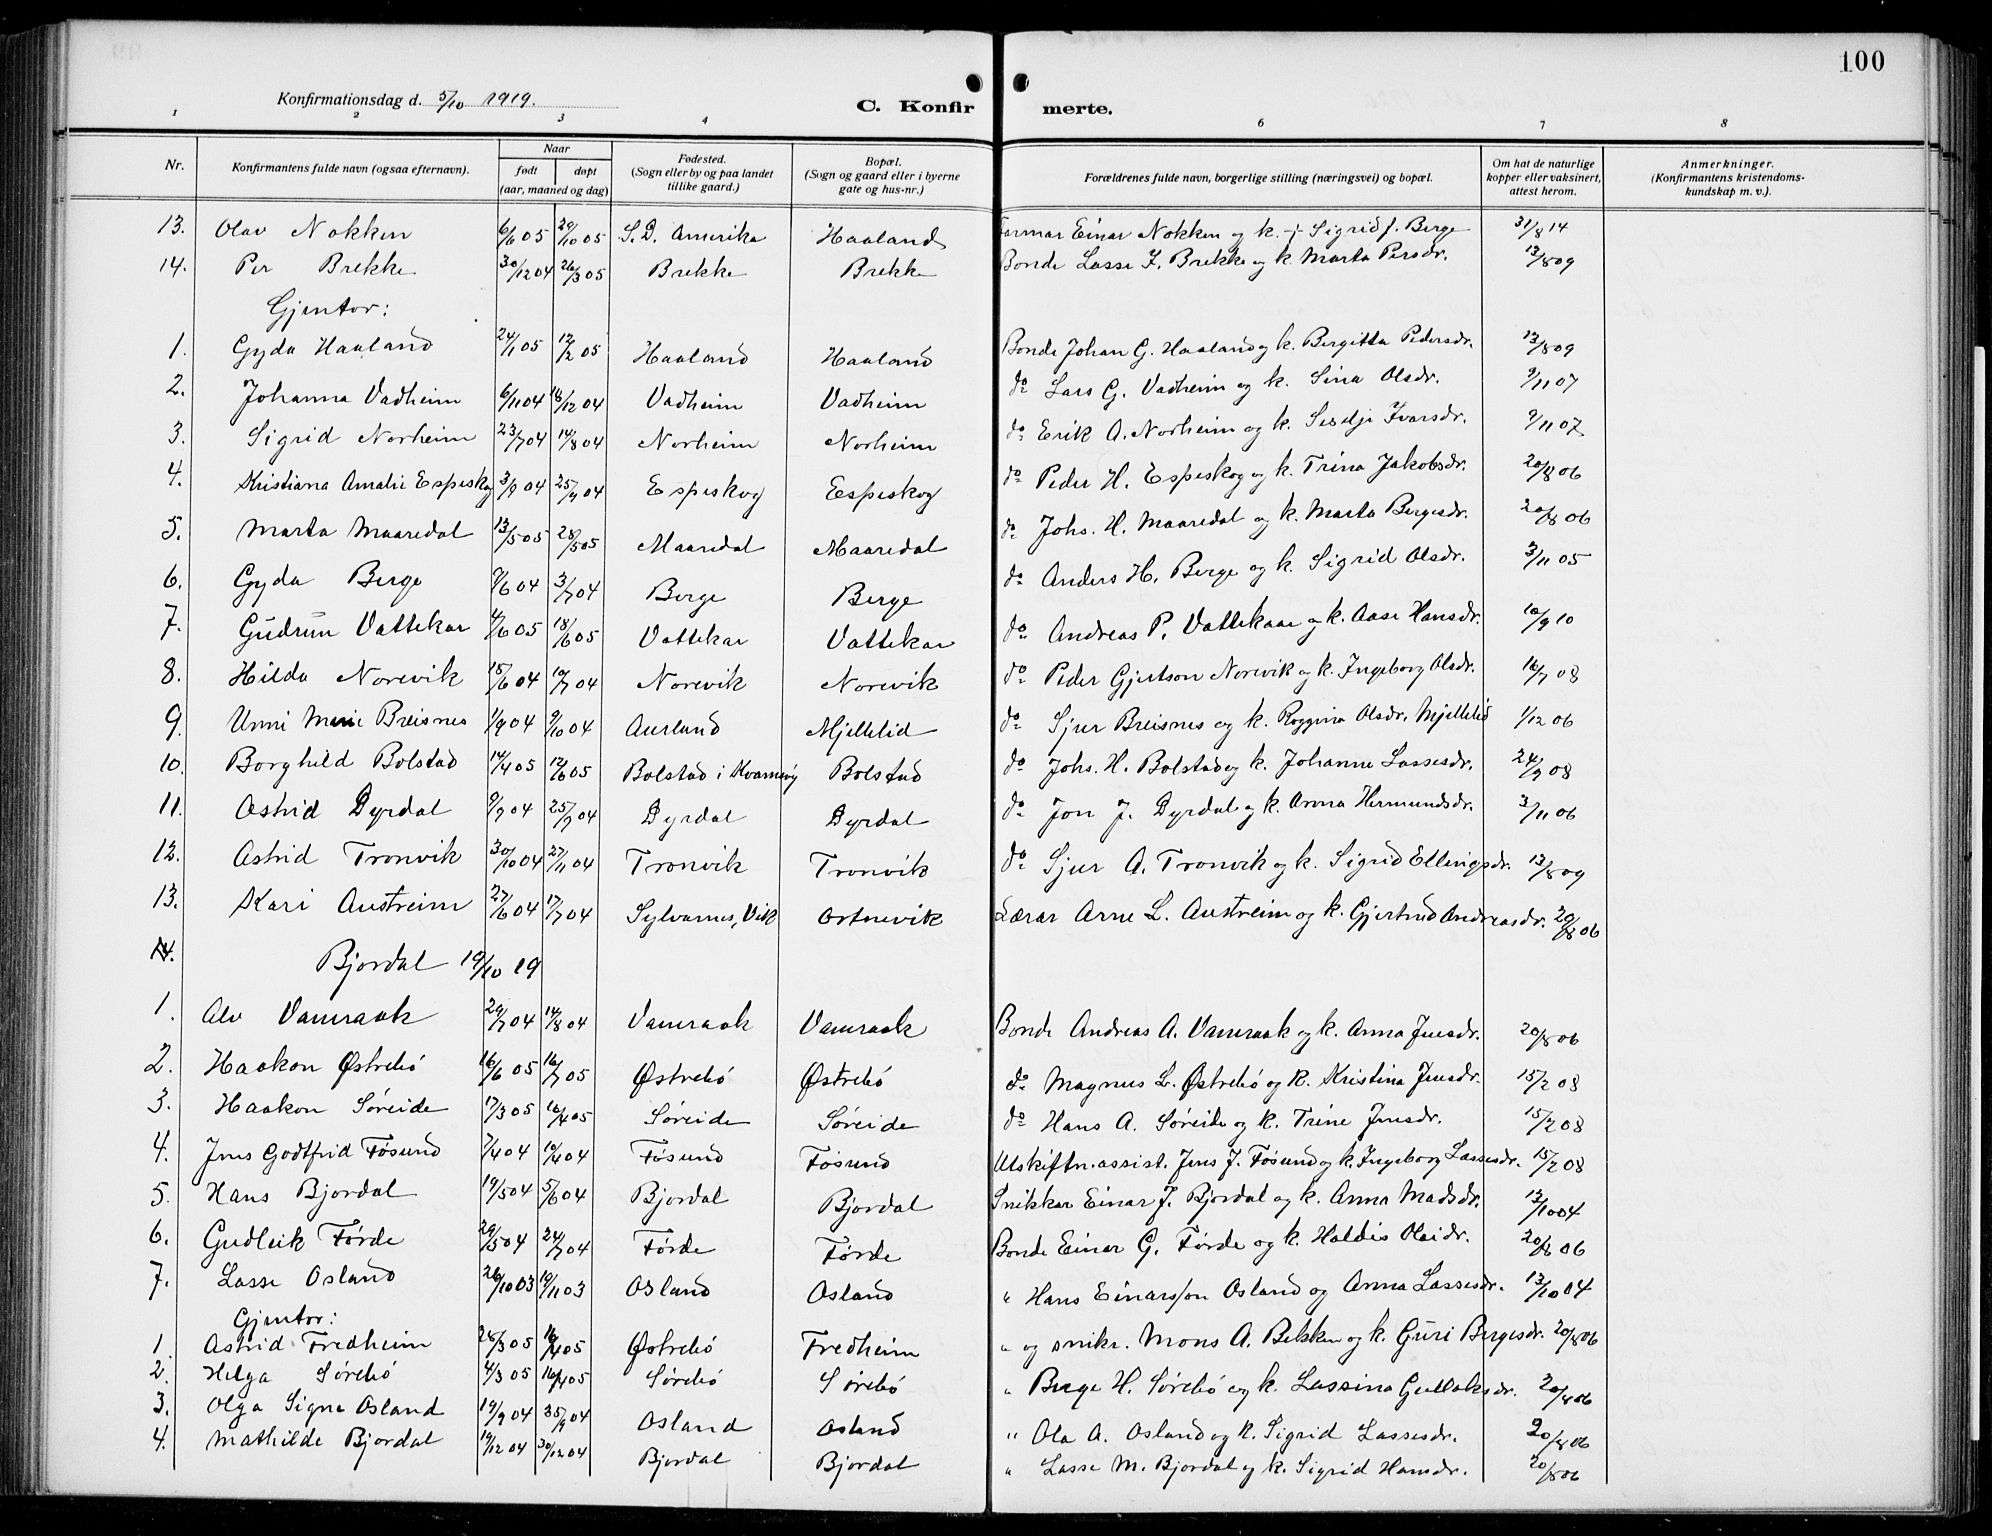 100
Konfirmationsdag d. 5/10 1919. C. Konfirmerte.
1 2 3 4 6 7 8
Nr. Konfirmantens fulde navn (ogsaa efternavn). Naar født døpt (aar, maaned og dag) Fødested. (Sogn eller by og paa landet tillike gaard.) Bopæl. (Sogn og gaard eller i byerne gate og hus-nr.) Forældrenes fulde navn, borgerlige stilling (næringsvei) og bopæl. Om hat de naturlige kopper eller vaksinert, attest herom. Anmerkninger. (Konfirmantens kristendomskundskap m. v.).
13. Olav Nokken 6/6 05 29/10 05 S. D. Amerika Haaland Farmar Einar Nokken og k. Sigrid f. Berge 31/8 14
14. Per Brekke 30/12 04 26/3 05 Brekke Brekke Bonde Lasse I. Brekke og k. Marta Persdr. 13/8 09
Gjentor:
1. Gyda Haaland 24/1 05 12/2 05 Haaland Haaland Bonde Johan G. Haaland og k. Bergitta Pedersdr. 13/8 09
2. Johanna Vadheim 6/11 04 18/12 04 Vadheim Vadheim do Lars G. Vadheim og k. Sina Olsdr. 9/11 07
3. Sigrid Norheim 23/7 04 14/8 04 Norheim Norheim do Erik A. Norheim og k. Seselje Ivarsdr. 9/11 07
4. Kristiana Amalie Espeskog 3/9 04 25/9 04 Espeskog Espeskog do Peder H. Espeskog og k. Trina Jakobsdr. 20/8 06
5. Marta Maaredal 13/5 05 28/5 05 Maaredal Maaredal do Johs. H. Maaredal og k. Marta Bergesdr. 20/8 06
6. Gyda Berge 9/6 04 3/7 04 Berge Berge do Anders H. Berge og k. Sigrid Olsdr. 3/11 05
7. Gudrun Vattekar 4/6 05 18/6 05 Vattekar Vattekar do Andreas P. Vattekaar og k. Aase Hansdr. 10/9 10
8. Hilda Norevik 15/6 04 10/7 04 Norevik Norevik do Peder Gjertson Norevik og k. Ingeborg Olsdr. 16/7 08
9. Unni Marie Breisnes 1/9 04 9/10 04 Aurland Mjellelid do Sjur Breisnes og k. Raggina Olsdr. Mjellelid 1/12 06
10. Borghild Bolstad 14/4 05 12/6 05 Bolstad i Kvamsøy Bolstad do Johs. H. Bolstad og k. Johanne Lassesdr. 24/9 08
11. Astrid Dyrdal 9/9 04 25/9 04 Dyrdal Dyrdal do Jon J. Dyrdal og k. Anna Hermundsdr. 3/11 06
12. Astrid Tronvik 30/10 04 27/11 04 Tronvik Tronvik do Sjur A. Tronvik og k. Sigrid Ellingsdr. 13/8 09
13. Kari Austreim 27/6 04 17/7 04 Sylvarnes, Vik Ortnevik Lærar Arne L. Austreim og k. Gjertrud Andreasdr. 20/8 06
14.
Bjordal 19/10 19
1. Alv Vamraak 29/7 04 14/8 04 Vamraak Vamraak Bonde Andreas A. Vamraak og k. Anna Jensdr. 20/8 06
2. Haakon Østrebö 16/6 05 16/7 05 Østrebö Østrebö do Magnus L. Østrebö og k. Kristina Jensdr. 15/2 08
3. Haakon Søreide 17/3 05 16/4 05 Søreide Søreide do Hans A. Søreide og k. Trine Jensdr. 15/2 08
4. Jens Godtfrid Fösund 7/4 04 10/4 04 Fösund Fösund Utskiftn.assist. Jens J. Fösund og k. Ingeborg Lassesdr. 15/2 08
5. Hans Bjordal 19/5 04 5/6 04 Bjordal Bjordal Snikkar Einar J. Bjordal og k. Anna Madsdr. 13/10 04
6. Gudleik Førde 29/5 04 24/7 04 Førde Førde Bonde Einar G. Førde og k. Haldis Olaidr. 20/8 06
7. Lasse Osland 26/10 03 19/11 03 Osland Osland " Hans Einarsson Osland og Anna Lassesdr. 13/10 04
Gjentor:
1. Astrid Fredheim 28/3 05 16/4 05 Østrebö Fredheim " og snikr. Mons A. Bekken og k. Guri Bergesdr. 20/8 06
2. Helga Sørebö 4/3 05 16/4 05 Sørebö Sørebö " Berge H. Sørebö og k. Lassina Gullaksdr. 20/8 06
3. Olga Signe Osland 19/9 04 25/9 04 Osland Osland " Ola A. Osland og k. Sigrid Lassesdr. 20/8 06
4. Mathilde Bjordal 19/12 04 30/12 04 Bjordal Bjordal " Lasse M. Bjordal og k. Sigrid Hansdr. 20/8 06